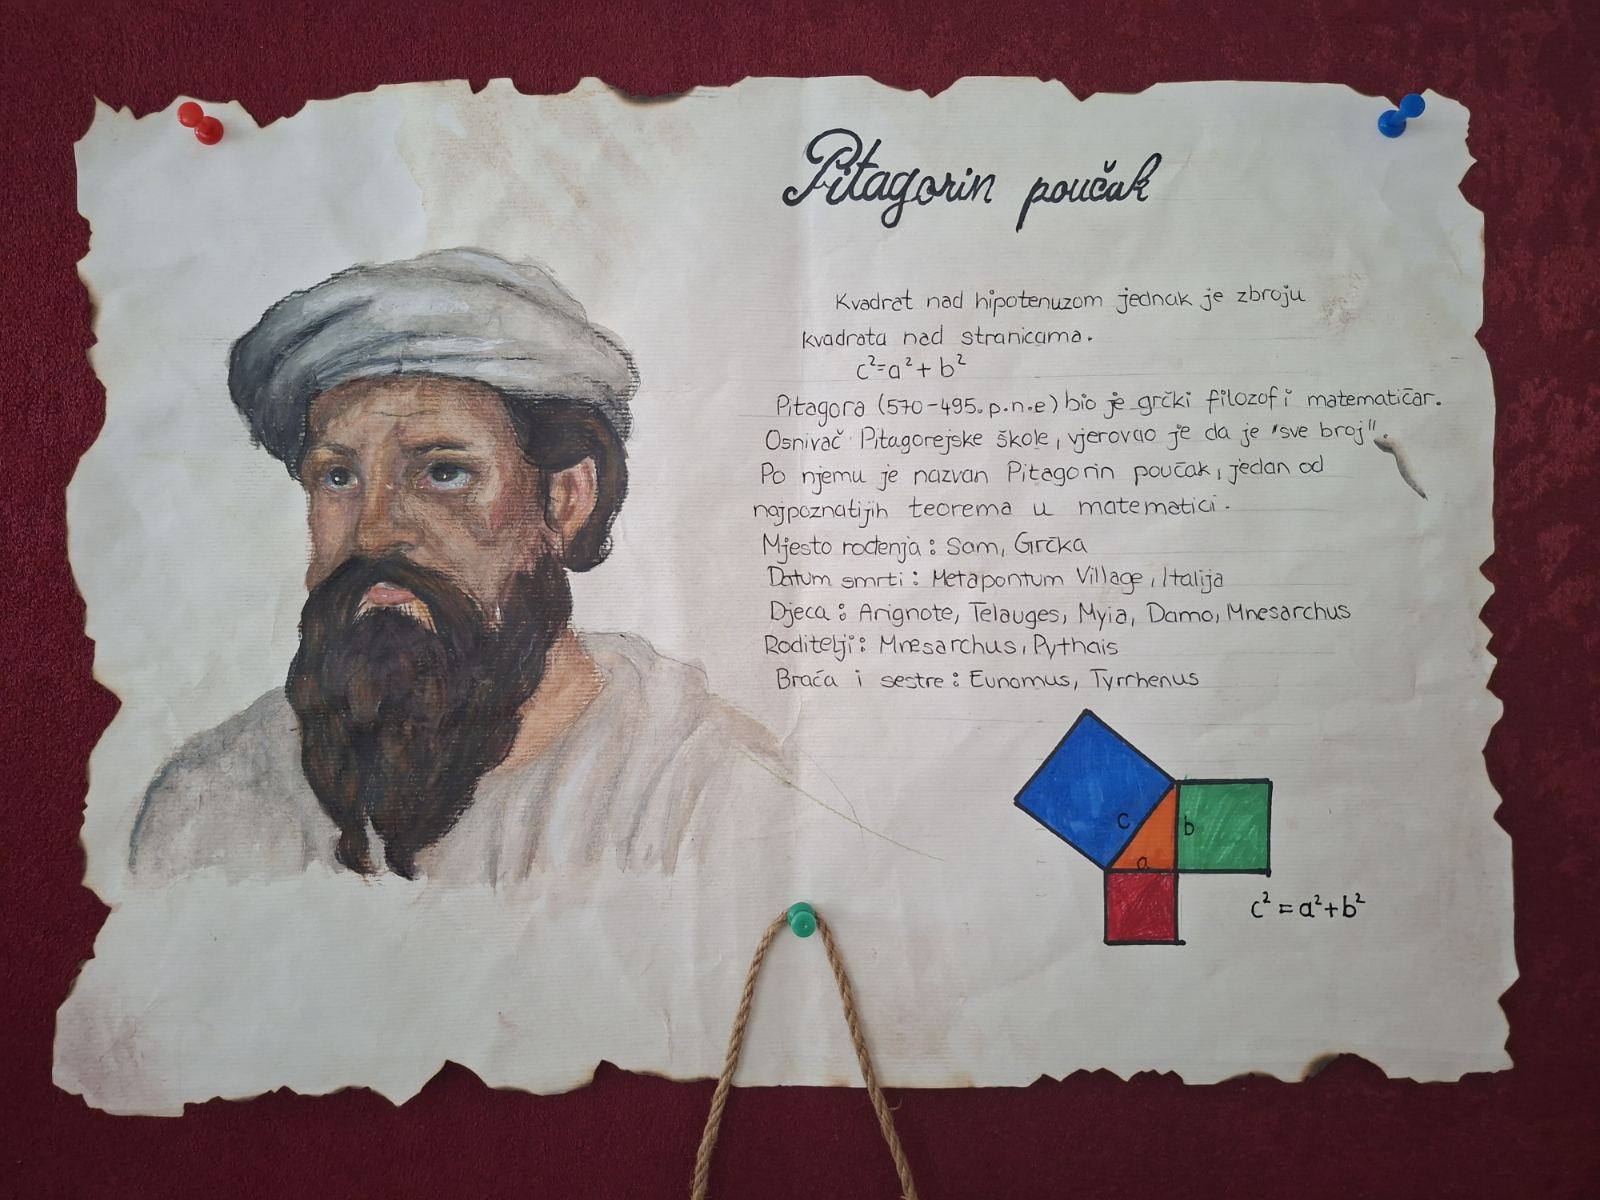 Pitagorin poučak
Kvadrat nad hipotenuzom jednak je zbroju
kvadrata nad stranicama.
c²=a²+b²
Pitagora (570-495. p.n.e) bio je grčki filozof i matematičar.
Osnivač Pitagorejske škole, vjerovao je da je "sve broj".
Po njemu je nazvan Pitagorin poučak, jedan od
najpoznatijih teorema u matematici.
Mjesto rođenja: Sam, Grčka
Datum smrti: Metapontum Village, Italija
Djeca: Arignote, Telauges, Myia, Damo, Mnesarchus
Roditelji: Mnesarchus, Pythais
Braća i sestre: Eunomus, Tyrrhenus
c
b
a
c²=a²+b²